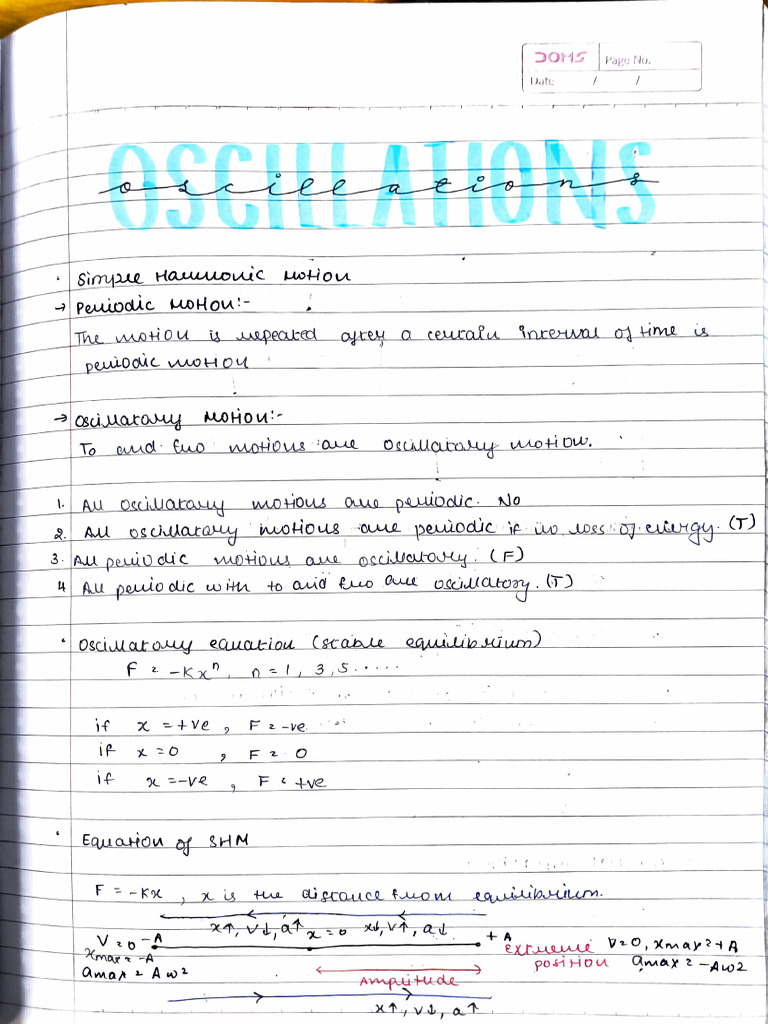 DOMS Page No.
Date / /
OSCILLATIONS
oscillations
• Simple Harmonic Motion
→ Periodic Motion:-
The motion is repeated after a certain interval of time is
periodic motion
→ Oscillatory Motion:-
To and fro motions are oscillatory motion.
1. All oscillatory motions are periodic. No
2. All oscillatory motions are periodic if no loss of energy. (T)
3. All periodic motions are oscillatory. (F)
4 All periodic with to and fro are oscillatory. (T)
• Oscillatory equation (stable equilibrium)
F = -Kxⁿ, n = 1, 3, 5.....
if x = +ve , F = -ve
if x = 0 , F = 0
if x = -ve , F = +ve
• Equation of SHM
F = -Kx , x is the distance from equilibrium.
x↑, v↓, a↑ x=0 x↓, v↑, a↓
V=0 -A +A extreme V=0, xmax=+A
xmax = -A position amax = -Aω2
amax = Aω2 Amplitude
x↑, v↓, a↑